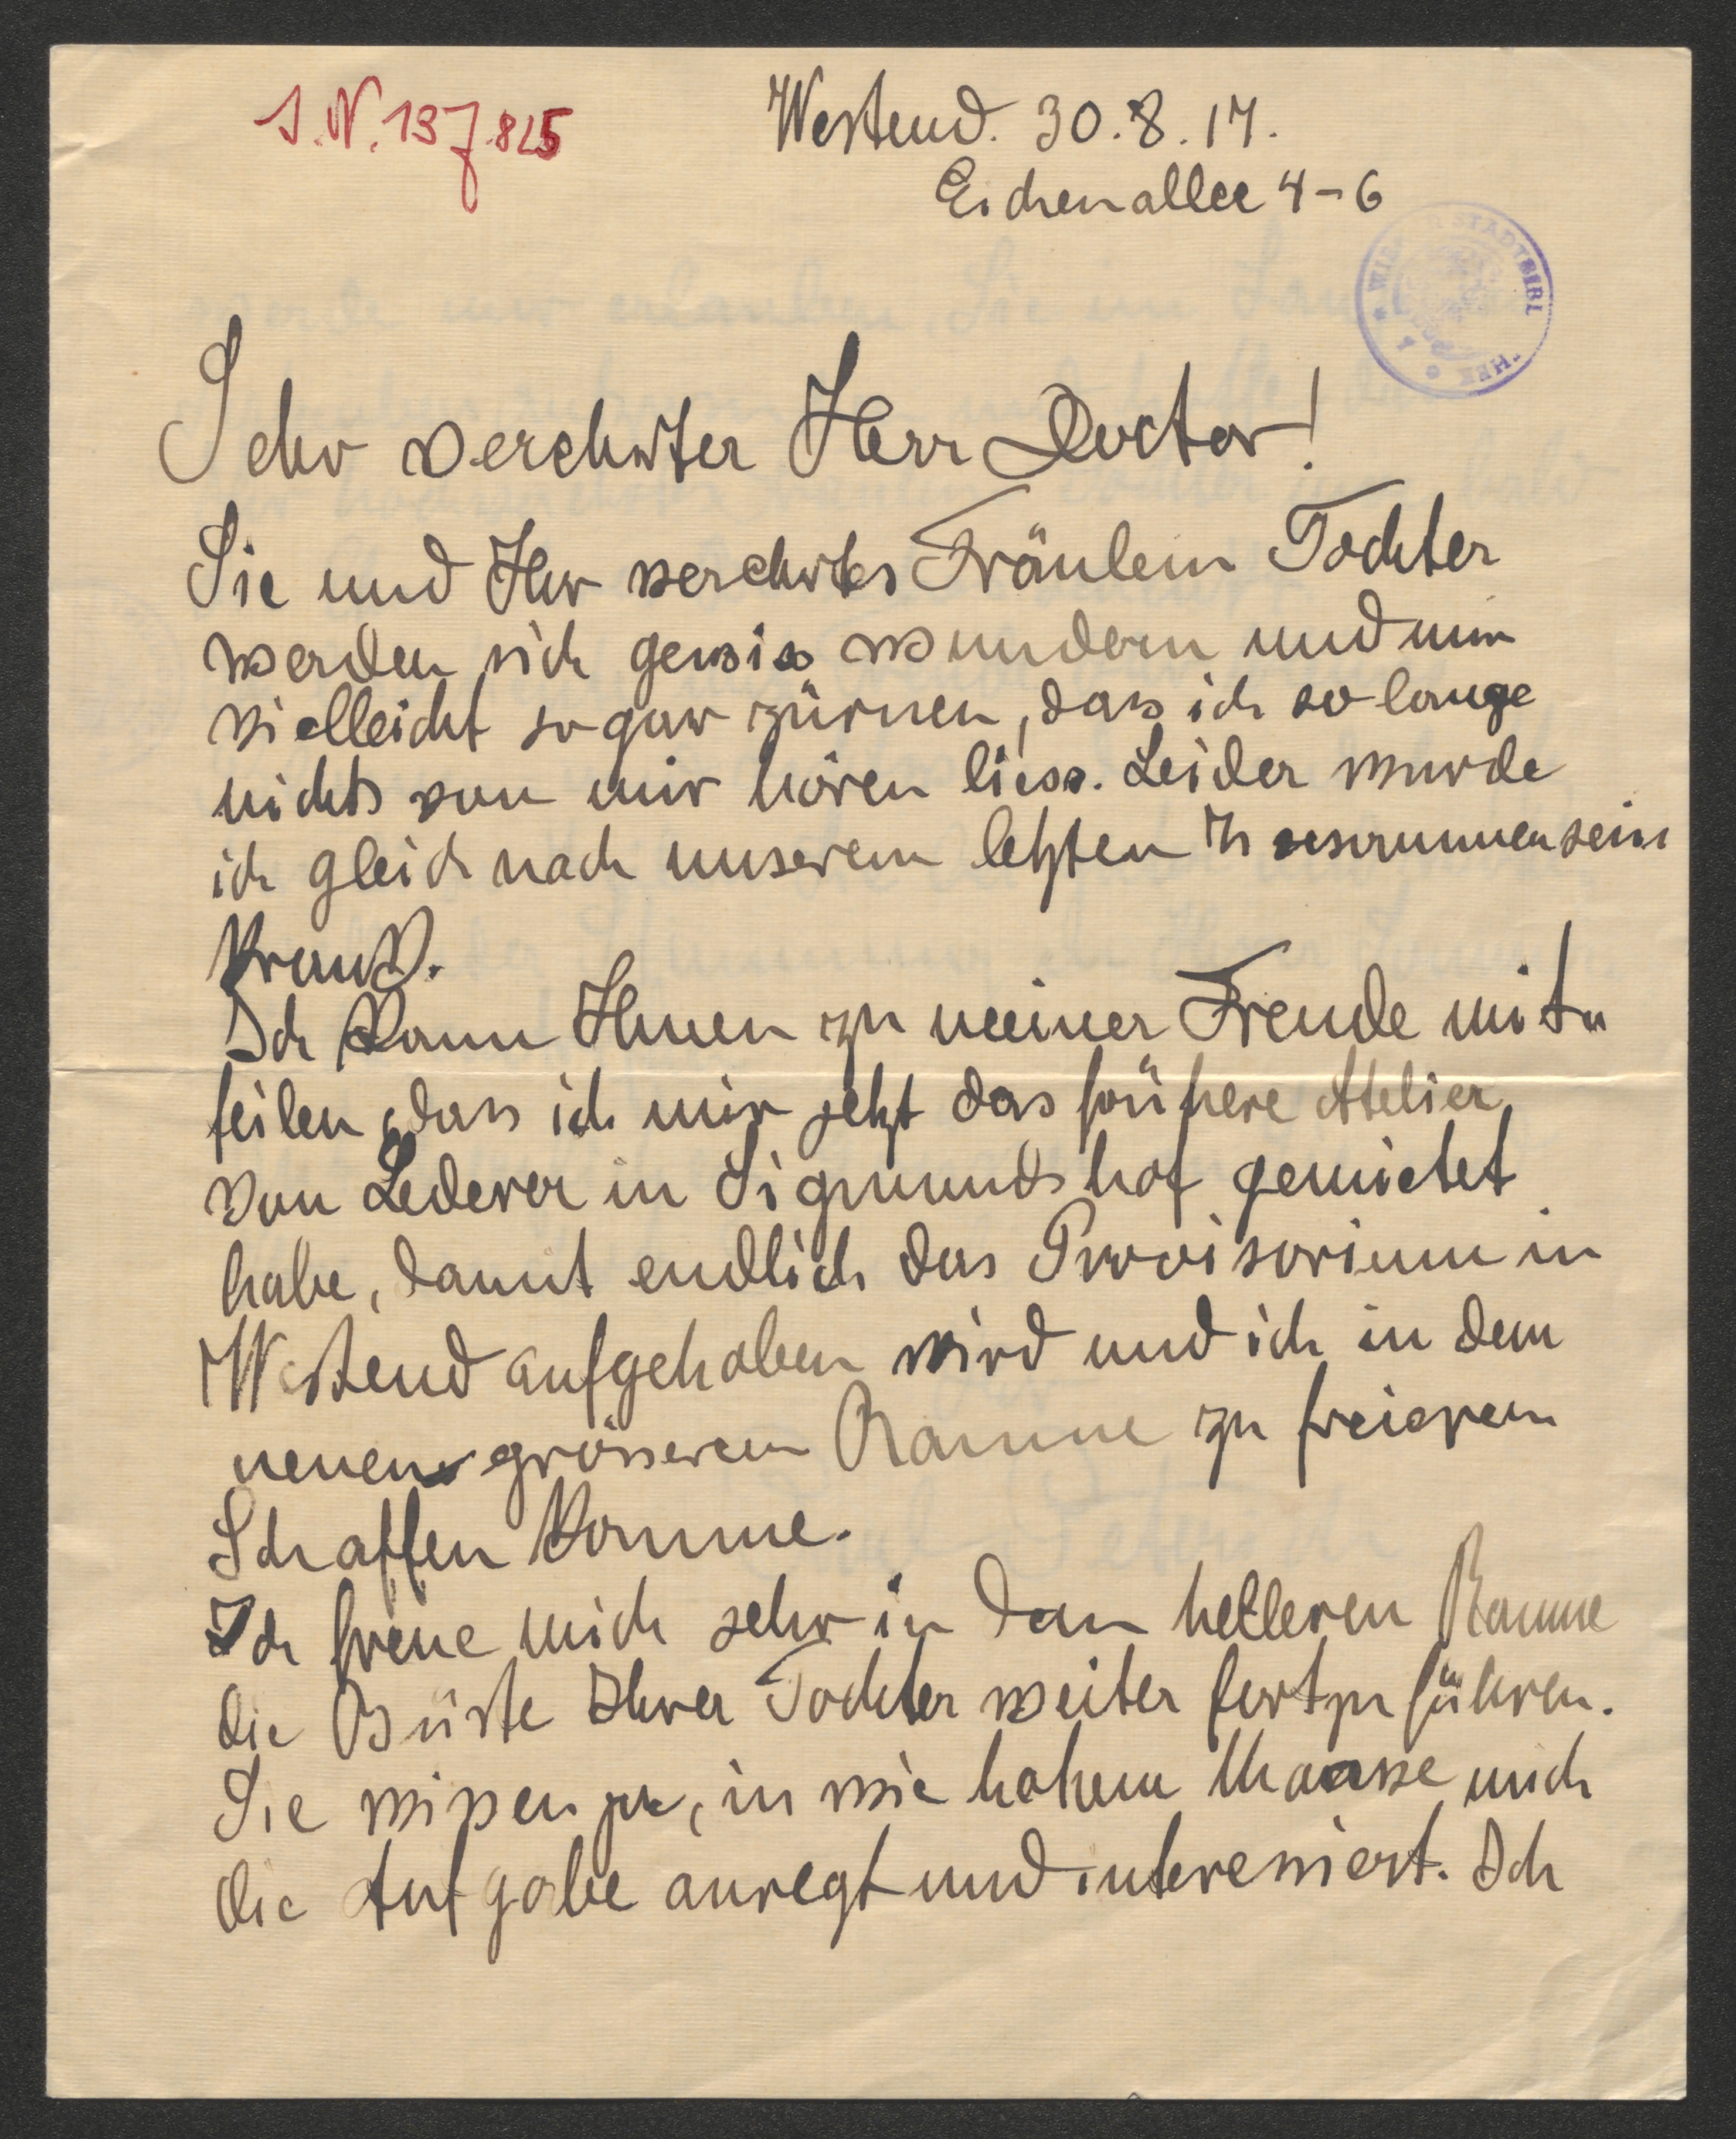 I.N. 137.825
Westend. 30.8.17.
Eichenallee 4-6
WIENER STADTBIBLIOTHEK
Sehr verehrter Herr Doctor!
Sie und Ihr verehrtes Fräulein Tochter
werden sich gewiss wundern und mir
vielleicht sogar zürnen, dass ich so lange
nichts von mir hören liess. Leider wurde
ich gleich nach unserem letzten Zusammensein
krank.
Ich kann Ihnen zu meiner Freude mit-
teilen, dass ich mir jetzt das frühere Atelier
von Lederer in Sigmundshof gemietet
habe, damit endlich das Provisorium in
Westend aufgehoben wird und ich in dem
neuen grösseren Raume zu freierem
Schaffen komme.
Ich freue mich sehr in dem helleren Raume
die Büste Ihrer Tochter weiter fortzuführen.
Sie wissen ja, in wie hohem Maasse mich
die Aufgabe anregt und interessiert. Ich